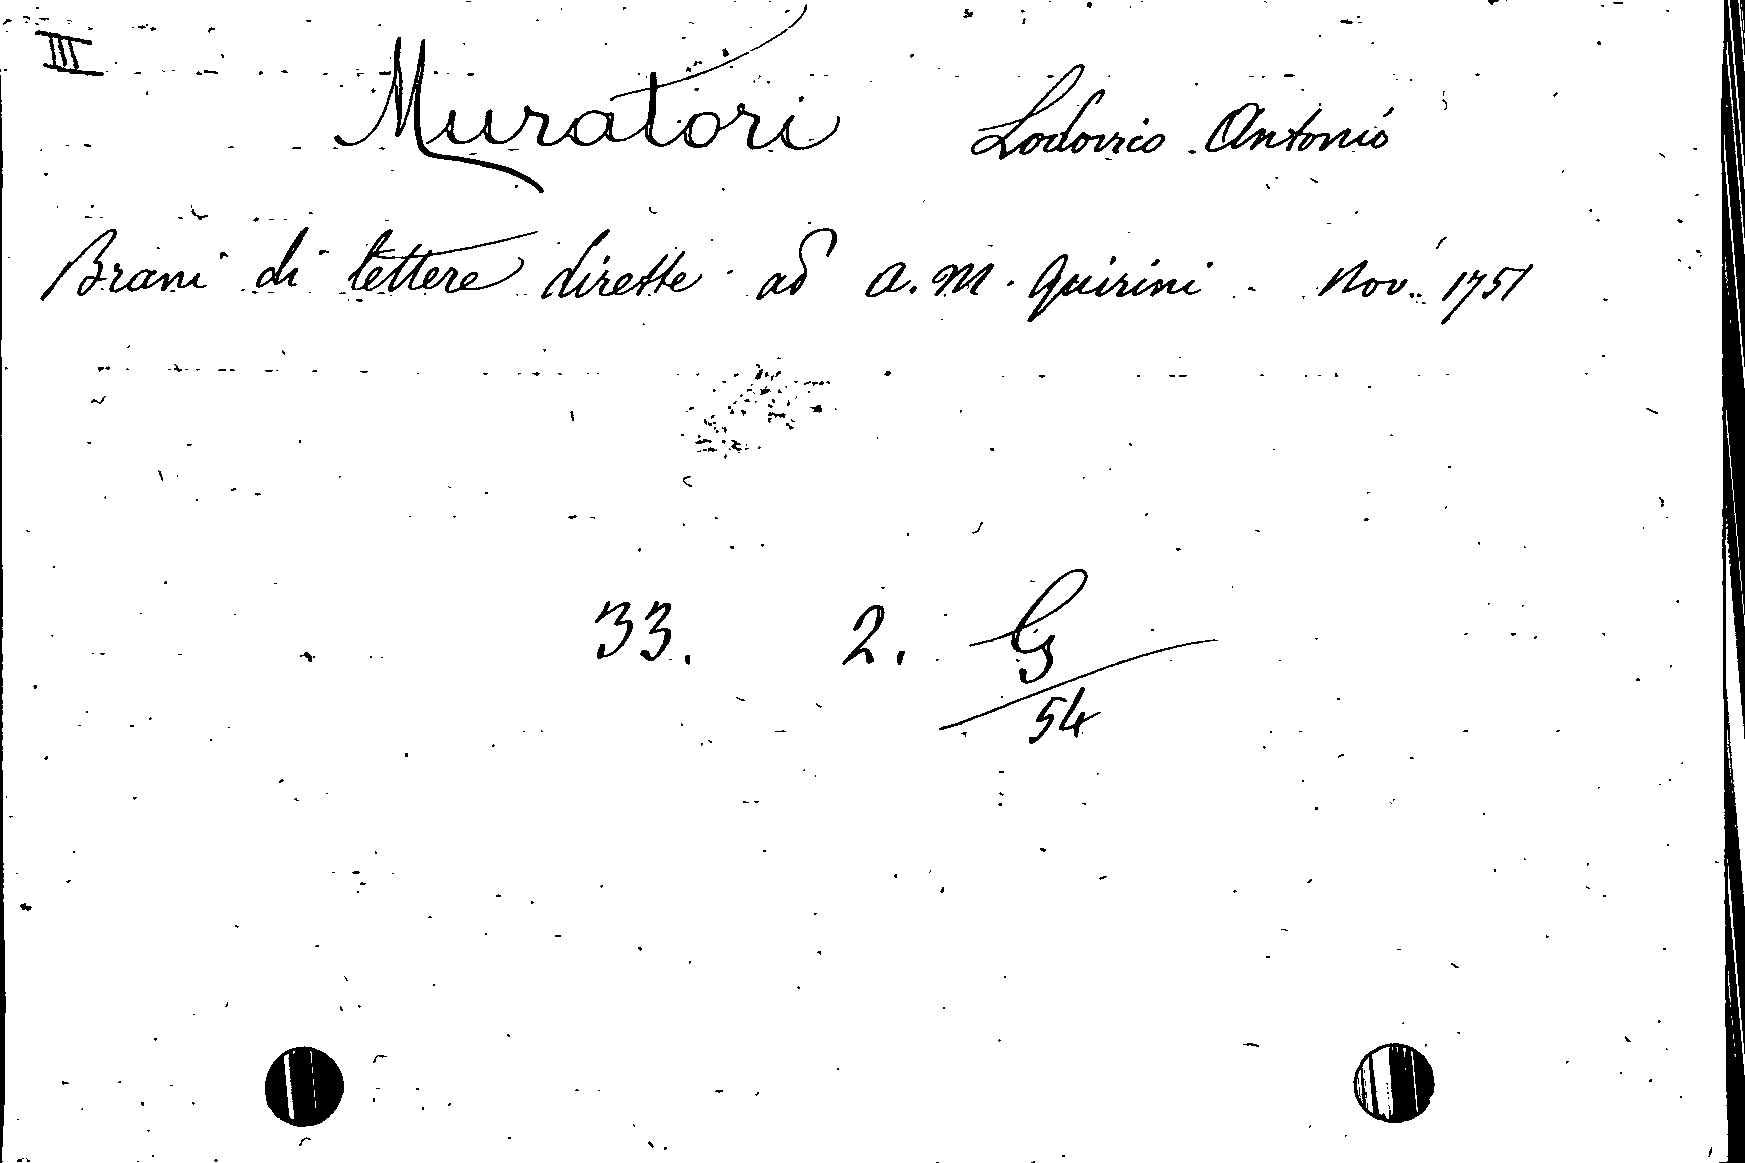 III
Muratori Lodovico Antonio
Brani di lettere dirette ad A. M. Quirini. Nov. 1751
33. 2. G
54